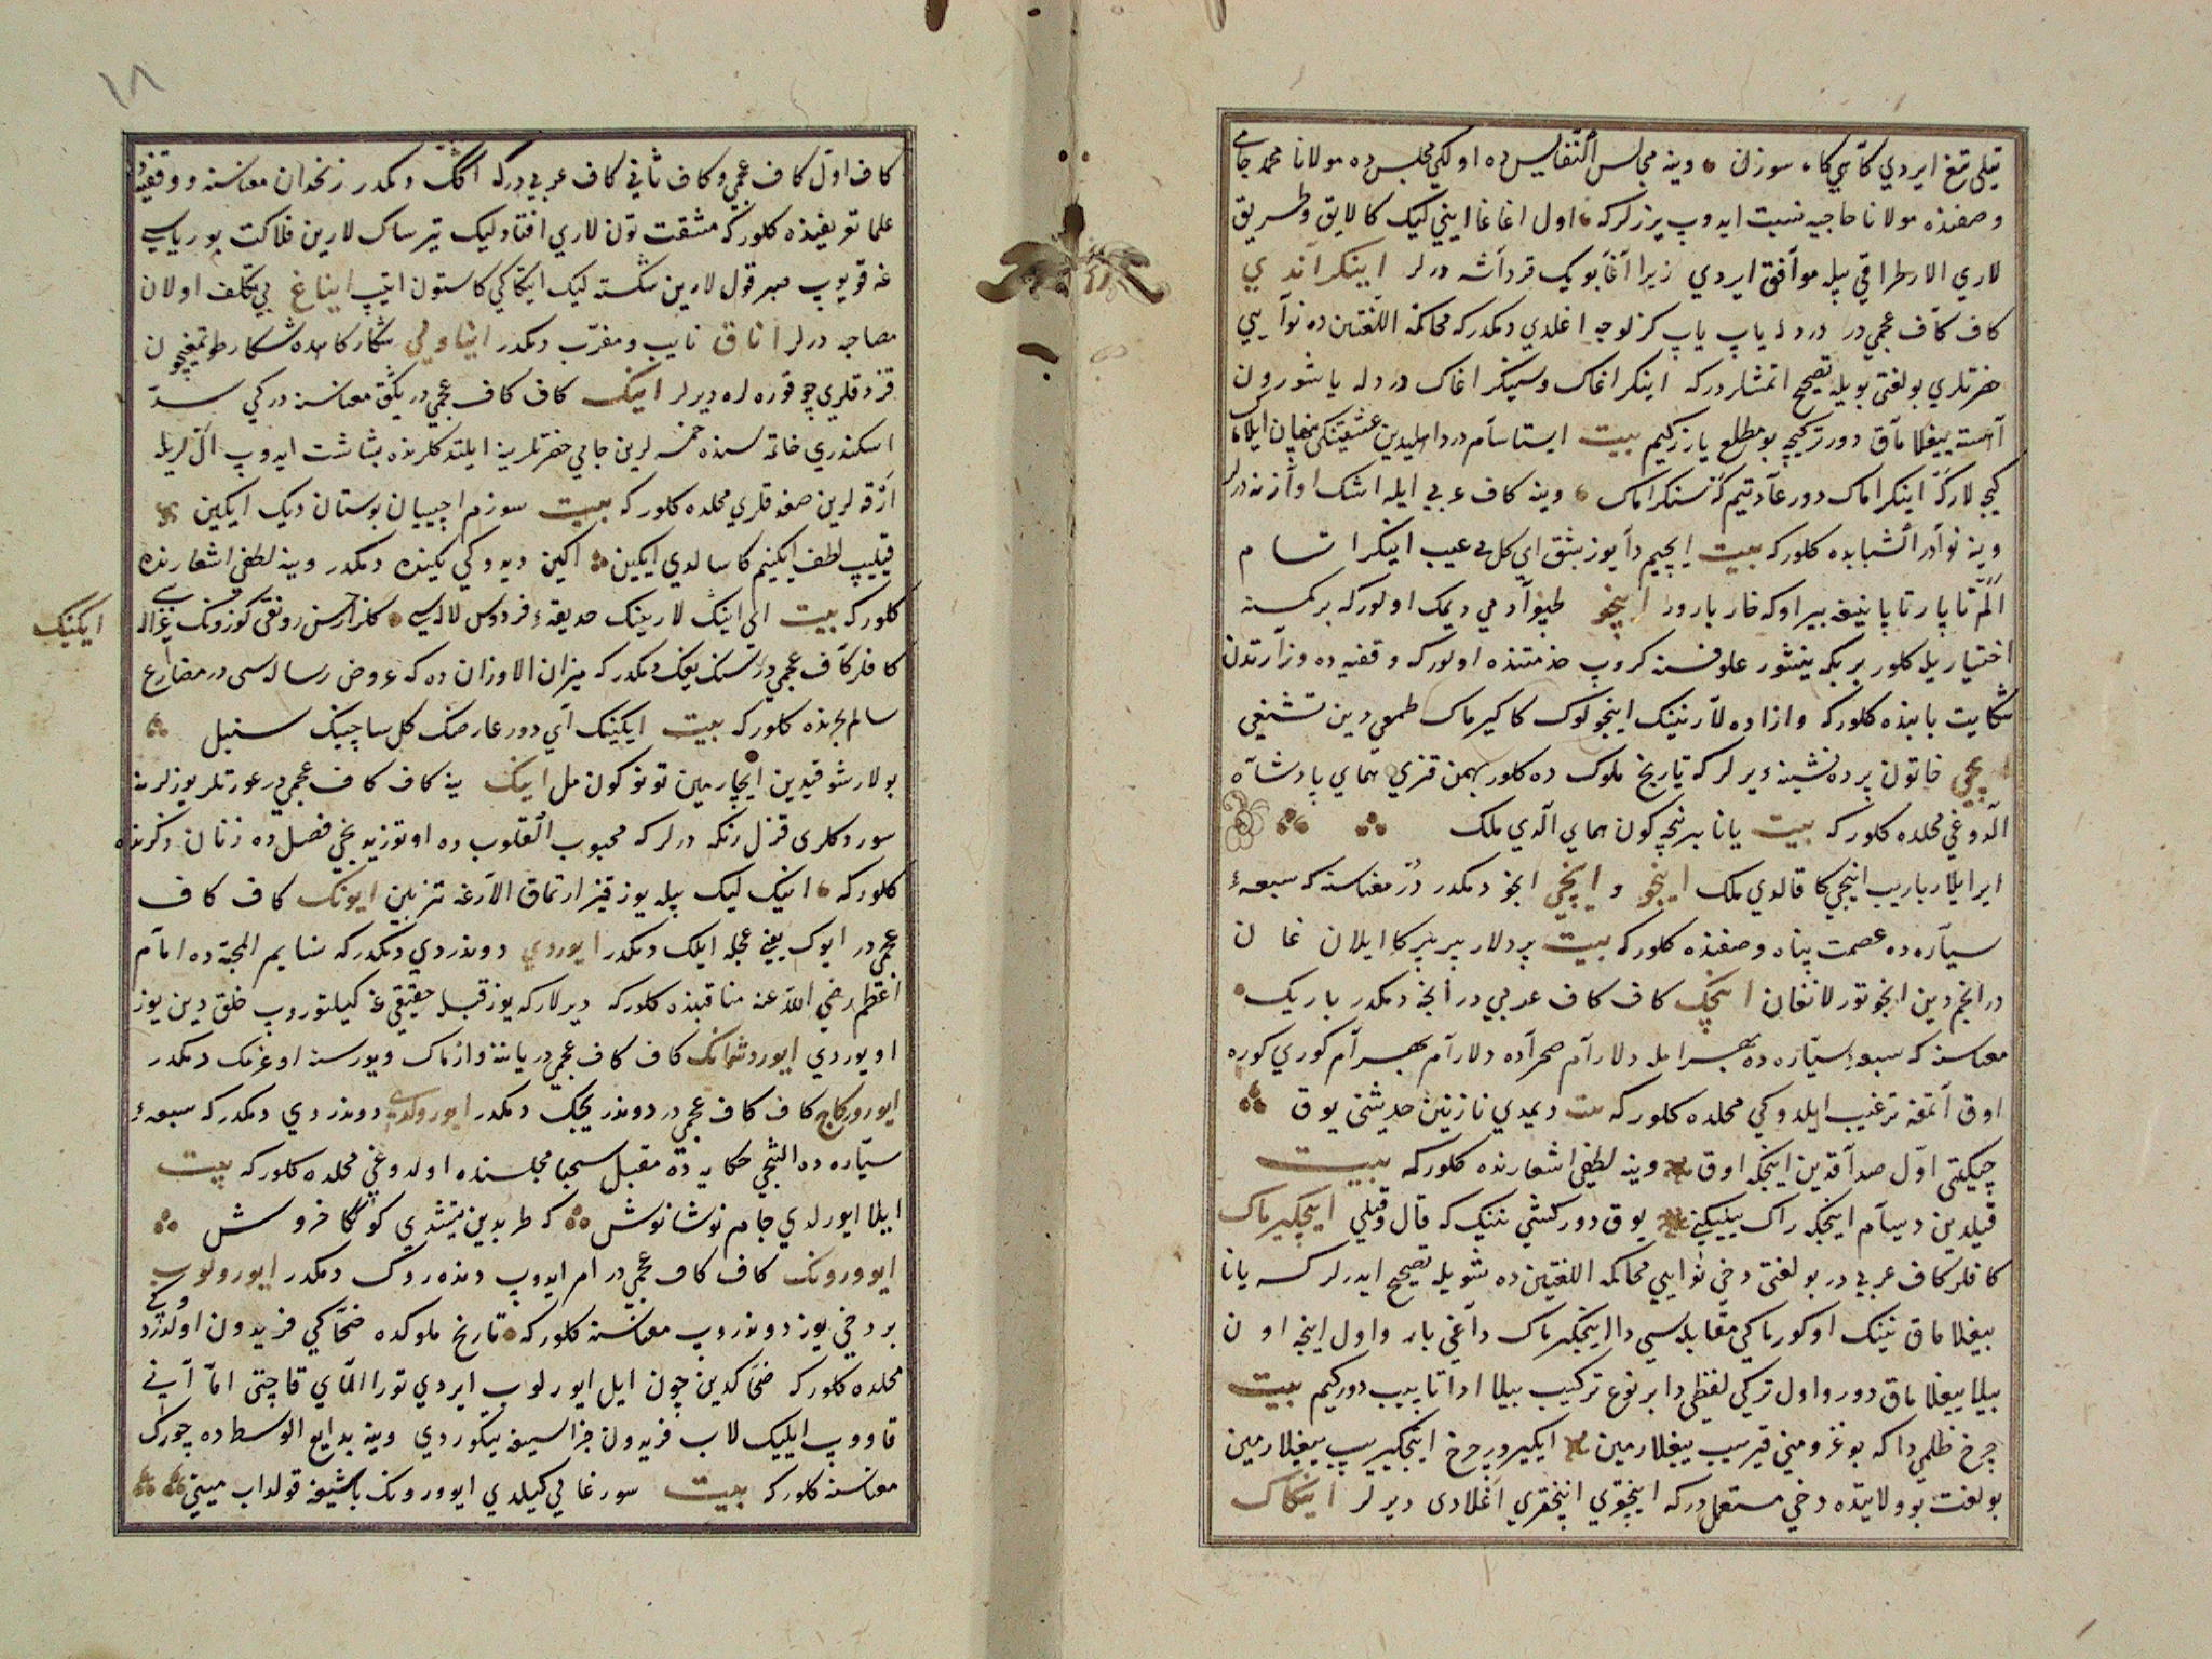 قیلی تیغ ایردي کاهي کا، سوزن وینه مجالس النفایس ده اولکي مجلس ده مولانا محمد جامي
وصفنده مولانا حاجیه نسبت ایدوپ یرزلرکه اول اغا غا اینی لیک کا لایق و طریق
لاري الار طراقي بیله موافق ایردي زیرا آغا بویک قرداشه درلر اینکراندي
کاف کاف عجمي در درد له یاپ یاپ کزلوجه اغلدي دمکدرکه محاکمة اللغتین ده نوایي
حضرتلري بو لغتی بویله تصحیح اتمشلردرکه اینکراغاک و سینکراغاک درد له یاشورون
آهسته ییغلاماق دور ترکیچه بو مطلع یارزکیم بیت ایستاسام دردا اهلیدین عشقینکنی پنهان ایلاماک
کیچه لار که اینکراماک دور عادتیم که سینکراماک وینه کاف عربي ایله اشک اوازنه درلر
وینه نوادر الشبابده کلورکه بیت ایچیم دا یوز بشق اي کل بي عیب اینکراسام
المّ تاپار تاپا نیغه بیراوکه خار بارور اینجو طپو آدمي دیمک اولورکه برکمسنه
اختیاریله کلور بربکه ینشور علوفسنه کروپ خدمتنده اولورکه وقفیه ده وزارتدن
شکایت بابنده کلورکه وازاده لارنینک اینجولوک کا کیرماک طمعي دین تشنیعي
خاتون پرده نشینه دیرلرکه تاریخ ملوک ده کلور بهمن قزي هماي پادشاه
الدوغي محلده کلورکه بیت یانا بیرنچه کون هماي الدي ملک
ایرا یلار باریب اینجي کا قالدي ملک اینجو و اینجي انجو دمکدر درّ معناسنه که سبعهٔ
سیاره ده عصمت پناه وصفنده کلورکه بیت پردلار بیر بیر کا ایلان غان
در انجم دین انجو تورلانغان اینجکه کاف کاف عربي در انجه دمکدر باریک
معناسنه که سبعهٔ سیاره ده بهرام ایله دلارام صحراده دلارام بهرام کوري کوره
اوق اتمغه ترغیب ایلدوکي محلده کلورکه بیت دیمدي نازنین حدیثنی یوق
چیکتی اوّل صداقدین اینجکه اوق وینه لطفي اشعارنده کلورکه بیت
قیلدین دیسام اینجکه راک بیلیکنی یوق دور کشي نینک که قال و قیلي اینجکیرماک
کافلر کاف عربي در بو لغتی دخي نوایي محاکمة اللغتین ده شویله تصحیح ایدرلر کسه یانا
ییغلاماق نینک اوکورماکي مقابله سي دا اینجکیرماک داغي بار و اول اینجه اون
بیلا ییغلاماق دور و اول ترکي لفظي دا بر نوع ترکیب بیلا ادا تاپیب دورکیم بیت
چرخ ظلمي دا که بوغزومني قیریب ییغلارمین ایکیرور چرخ اینجکیریب ییغلارمین
بولغت بو ولایتده دخي مستعملدرکه اینجقري اینجقري اغلادی دیرلر اینکاک
۱۸
کاف اوّل کاف عجمي و کاف ثاني کاف عربي درکه اکک دمکدر زنخدان معناسنه و وقفیه
علما تعریفنده کلورکه مشقت تون لاري افتاده لیک تیرساک لارین فلاکت بوریاسي
غه قویوپ صبر قول لارین شکسته لیک اینکاکي کا ستون ایتیپ ایناغ بي تکلف اولان
مصاحبه درلر اناق نایب و مقرّب دمکدر ایناولي شکارکاهده شکار طوتمغچون
قزدقلري چوقوره له دیرلر اینک کاف کاف عجمي در یکّق معناسنه درکي سدّ
اسکندري خاتمه سنده خمسه لرین جامي حضرتلرینه ایلتدکلرنده بشاشت ایدوپ اَل لریله
اَرقه لرین صغه قلري محلده کلورکه بیت سوزم اچیبان بوستان دیک ایکین
قیلیپ لطف ایکنیم کا سالدي ایکین اکین دیدوکي یکینده دمکدر وینه لطفي اشعارنده
کلورکه بیت اي اینک لارینک حدیقهٔ فردوس لاله سي کلزار حسن رونقی کوزونک غزاله سي ایکینک
کافلر کاف عجمي در سنک یکک دمکدرکه میزان الاوزان ده که عروض رساله سي در مضارع
سالم بحرنده کلورکه بیت ایکینک آي دور عارضنک کل ساچینک سنبل
بولار شوقیدین ایچارمین تونو کون مل اینک ینه کاف کاف عجمي در عورتلر یوزلرنه
سوردکلری قزل رنکه درلرکه محبوب القلوب ده اوتوزیدنجي فصل ده زنان ذکرنده
کلورکه انیک لیک بیله یوز قیزارتماق الارغه تزیین ایونک کاف کاف
عجمي در ایوک یعني عجله ایلک دمکدر ایوردي دوندردي دمکدرکه نسایم المحبة ده امام
اعظم رضي الله عنه مناقبنده کلورکه دیرلارکه یوز قبله حقیقي غه کیلتوروپ خلق دین یوز
اویوردي ایوروشماک کاف کاف عجمي در یاتنه وازماک و یورسه اوغرمک دمکدر
ایورورکاج کاف کاف عجمي در دوندریجک دمکدر ایورولدي دوندردي دمکدرکه سبعهٔ
سیاره ده التنجي حکایه ده مقبل سجبا مجلسنده اولدوغي محلده کلورکه بیت
ایلا ایورلدي جام نوشانوش که طربدین یتیشدي کوککا خروش
ایوورونک کاف کاف عجمي در امر ایدوپ دونده روک دمکدر ایورولوب
بردخي یوز دوندروپ معناسنه کلورکه تاریخ ملوکده ضحاکي فریدون اولدردوکي
محلده کلورکه ضحاکدین چون ایل ایورلوب ایردي تورا المّاي قاچتی امّا آني
قاووپ ایلیک لاب فریدون جزاسیغه ییکوردي وینه بدایع الوسط ده چورک
معناسنه کلورکه بیت سورغالي کیلدي ایوورونک باشیغه قولداب میني